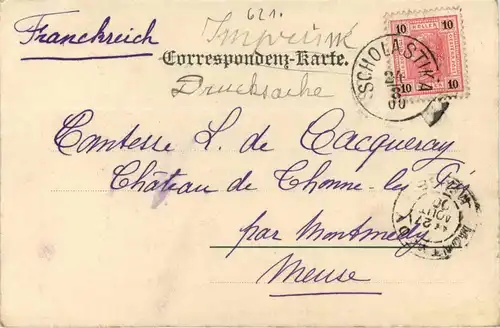 621.
Franckreich
Imprimé
Correspondenz-Karte.
Drucksache
10 HELLER 10
10 10
SCHOLASTIKA
24
8
00
Comtesse L. de Cacqueray
Château de Thonne-les
par Montmédy
Meuse
27
AOUT
00